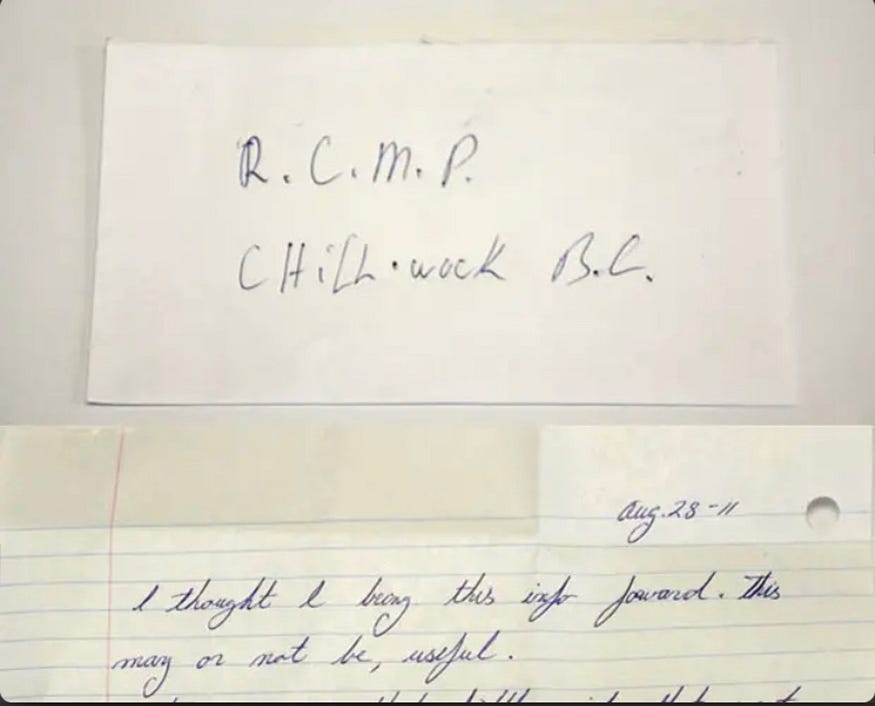 R.C.M.P.
CHiLL·wack B.C.
Aug. 28-11
I thought I bring this info foward. This
may or not be, useful.